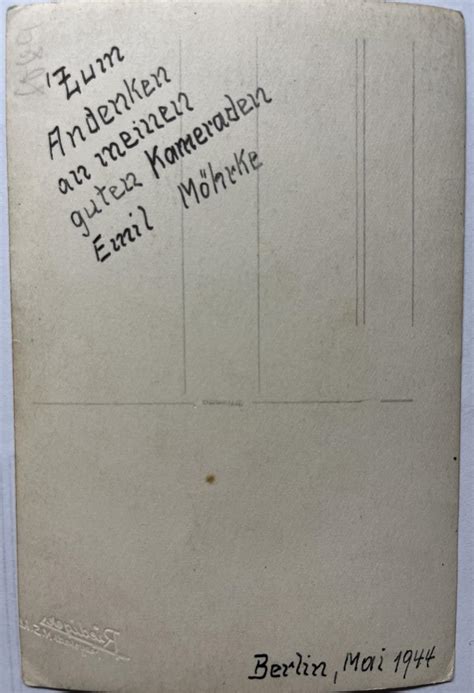 Zum
Andenken
an meinen
guten Kameraden
Emil Möhrke
Berlin, Mai 1944